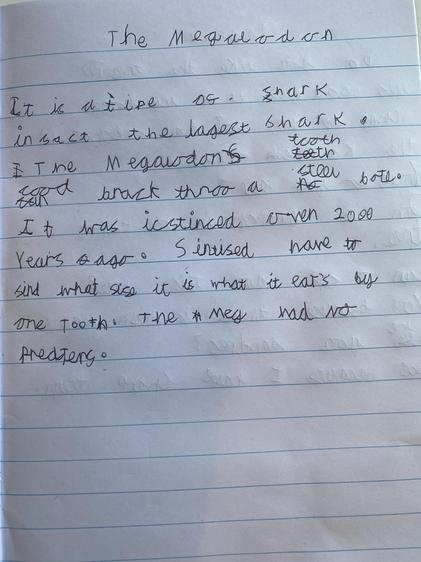 The Megaeodon
It is a tipe of. shark
in sact the lagest shark.
I The Megawdon tooth
cood brack throo a steel bote.
It was icstinced oven 2000
Years ago. Sintised have to
sind what size it is what it ear's by
one tooth. The Meg had no
Predters.